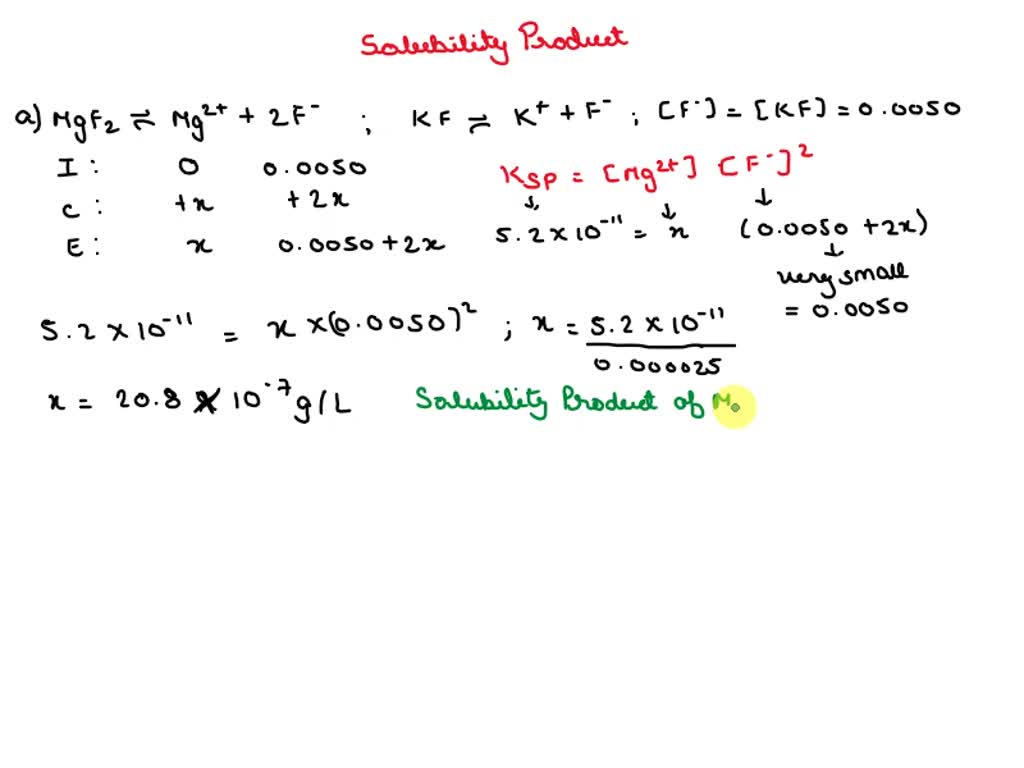 Solubility Product
a) MgF₂ ⇌ Mg²⁺ + 2F⁻ ; KF ⇌ K⁺ + F⁻ ; [F⁻] = [KF] = 0.0050
I : 0 0.0050
C : +x +2x
E : x 0.0050 + 2x
Ksp = [Mg²⁺] [F⁻]²
5.2 × 10⁻¹¹ = x (0.0050 + 2x)
very small
= 0.0050
5.2 × 10⁻¹¹ = x × (0.0050)² ; x = 5.2 × 10⁻¹¹ / 0.000025
x = 20.8 × 10⁻⁷ g/L Solubility Product of M